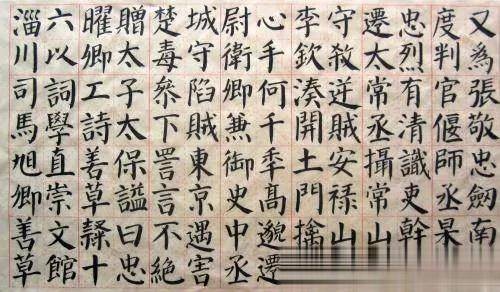 又為張敬忠劒南
度判官偃師丞杲
忠烈有清識吏幹
遷太常丞攝常山
守殺逆賊安禄山
李欽湊開土門擒
心手何千秊高邈遷
尉衛卿兼御史中丞
城守陷賊東京遇害
楚毒叅下詈言不絕
贈太子太保諡曰忠
曜卿工詩善草隸十
六以詞學直崇文館
淄川司馬旭卿善草